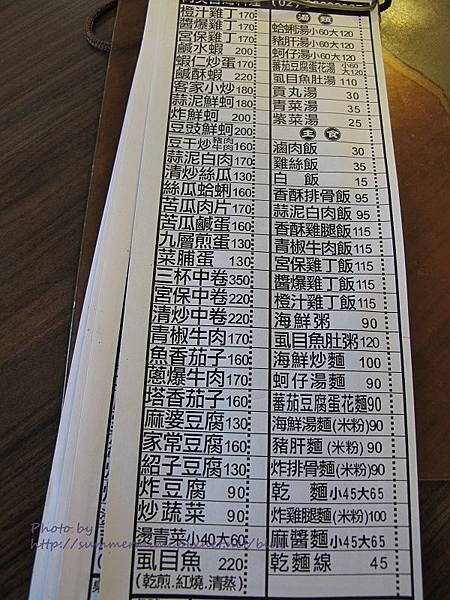 橙汁雞丁 170
醬爆雞丁 170
宮保雞丁 170
鹹水蝦 200
蝦仁炒蛋 170
鹹酥蝦 220
客家小炒 180
蒜泥鮮蚵 180
炸鮮蚵 200
豆豉鮮蚵 200
豆干炒 豬肉 牛肉 160
蒜泥白肉 170
清炒絲瓜 130
絲瓜蛤蜊 160
苦瓜肉片 170
苦瓜鹹蛋 160
九層煎蛋 130
菜脯蛋 130
三杯中卷 350
宮保中卷 220
清炒中卷 220
青椒牛肉 170
魚香茄子 160
蔥爆牛肉 170
塔香茄子 160
麻婆豆腐 130
家常豆腐 160
紹子豆腐 130
炸豆腐 90
炒蔬菜 90
燙青菜 小40大60
虱目魚 220
(乾煎.紅燒.清蒸)
湯類
蛤蜊湯 小60大120
豬肝湯 小60大120
蚵仔湯 小60大120
蕃茄豆腐蛋花湯 小60大120
虱目魚肚湯 110
貢丸湯 30
青菜湯 35
紫菜湯 25
主食
滷肉飯 30
雞絲飯 35
白飯 15
香酥排骨飯 95
蒜泥白肉飯 95
香酥雞腿飯 115
青椒牛肉飯 115
宮保雞丁飯 115
醬爆雞丁飯 115
橙汁雞丁飯 115
海鮮粥 90
虱目魚肚粥 120
海鮮炒麵 100
蚵仔湯麵 90
蕃茄豆腐蛋花麵 90
海鮮湯麵(米粉) 90
豬肝麵(米粉) 90
炸排骨麵(米粉) 90
乾麵 小45大65
炸雞腿麵(米粉) 100
麻醬麵 小45大65
乾麵線 45
Photo by